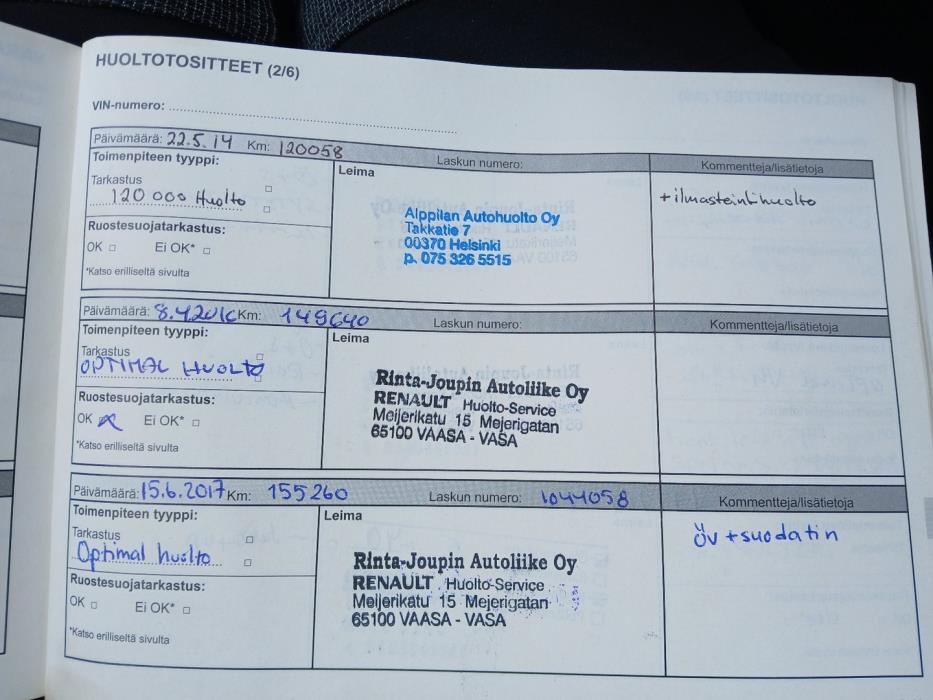 HUOLTOTOSITTEET (2/6)
VIN-numero:
Päivämäärä: 22.5.14 Km: 120058
Laskun numero:
Kommentteja/lisätietoja
Toimenpiteen tyyppi:
Tarkastus
120 000 Huolto
Ruostesuojatarkastus:
OK Ei OK*
*Katso erilliseltä sivulta
Leima
Alppilan Autohuolto Oy
Takkatie 7
00370 Helsinki
p. 075 326 5515
+ilmastointihuolto
Päivämäärä: 8.4.2016 Km: 149640
Laskun numero:
Kommentteja/lisätietoja
Toimenpiteen tyyppi:
Tarkastus
OPTIMAL HUOLTO
Ruostesuojatarkastus:
OK Ei OK*
*Katso erilliseltä sivulta
Leima
Rinta-Joupin Autoliike Oy
RENAULT Huolto-Service
Meijerikatu 15 Mejerigatan
65100 VAASA - VASA
Päivämäärä: 15.6.2017 Km: 155260
Laskun numero: 1044058
Kommentteja/lisätietoja
Toimenpiteen tyyppi:
Tarkastus
Optimal huolto
Ruostesuojatarkastus:
OK Ei OK*
*Katso erilliseltä sivulta
Leima
Rinta-Joupin Autoliike Oy
RENAULT Huolto-Service
Meijerikatu 15 Mejerigatan
65100 VAASA - VASA
öv + suodatin